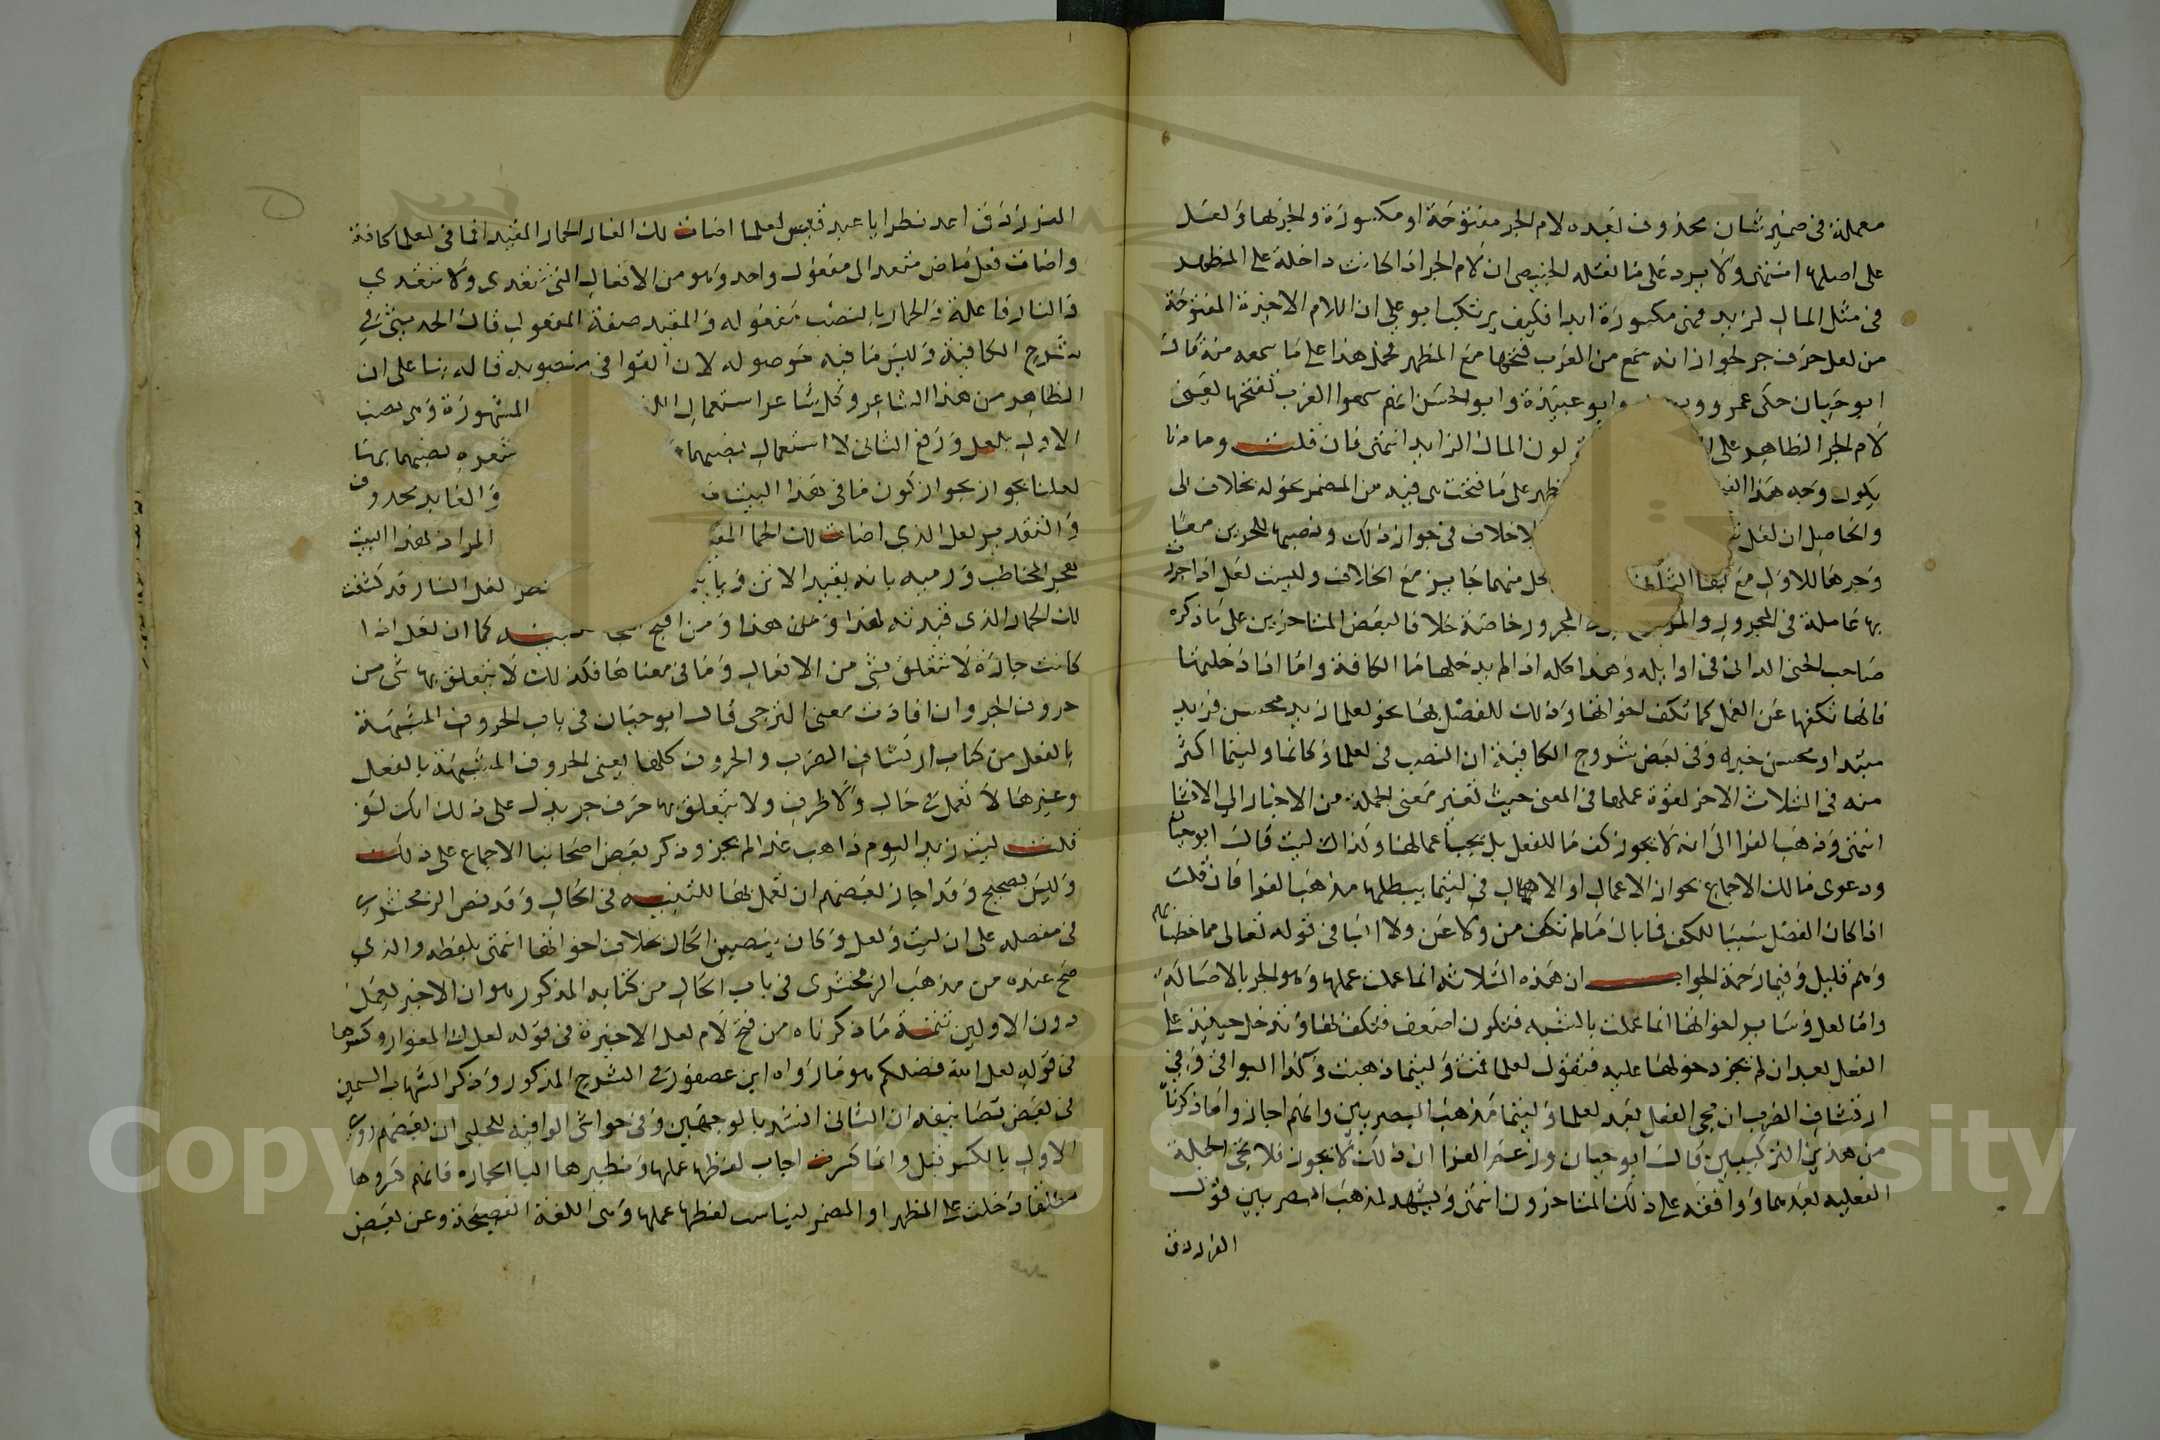 معملة في ضمير شان محذوف بعده لام الجر مفتوحة او مكسورة والجر بها ولعل
على اصلها انتهى ولا يرد على ما نقله الخبيصي ان لام الجر اذا كانت داخلة على المظهر
في مثل المال لزيد فهي مكسورة ابدا فكيف يرتكب ابو علي ان اللام الاخيرة المفتوحة
من لعل حرف جر لجواز انه سمع من العرب فتحها مع المظهر فحمل هذا على ما سمعه منه قال
ابو حيان حكى عمرو وابو عبيدة وابو الحسن انهم سمعوا العرب تفتحها يعني
لام الجر الظاهر على لون المال لزايد انتهى فان قلت وماذا
يكون وجه هذا على ما فتحت هي فيه من المضمر نحو له بخلاف لي
والحاصل ان لعل لا خلاف في جواز ذلك ونصبها للجزين معا
وجرها للاول مع منهما جايز مع الخلاف وليست لعل اذا جرت
بها عاملة في المجرور المجرور خاصة خلافا لبعض المتاخرين على ما ذكره
صاحب الجنى الداني في اوايله وهذا كله اذا لم يدخلها ما الكافة واما اذا دخلتها
فانها تكفها عن العمل كما تكف اخواتها وذلك للفصل بها نحو لعلما زيد محسن فزيد
مبتدا ومحسن خبره وفي بعض شروح الكافية ان النصب في لعلما وكانما وليتما اكثر
منه في الثلاث الاخر لقوة عملها في المعنى حيث تغير معنى الجملة من الاخبار الى الانشا
انتهى وذهب الفرا الى انه لا يجوز كف ما للفعل بل يجب اعمالها وكذلك ليت قال ابو حيان
ودعوى مالك الاجماع بجواز الاعمال او الاهمال في ليتما يبطلها مذهب الفرا فان قلت
اذا كان الفصل سببا للكف فما بال ما لم تكف من ولا عن ولا البا في قوله تعالى مما خطيآتهم
وعم قليل وفبما رحمة الجواب ان هذه الثلاثة انما عملت عملها وهو الجر بالاصالة
واما لعل وساير اخواتها انما عملت بالشبه فتكون اضعف فتكف لها وتدخل حينئذ على
الفعل بعد ان لم يجز دخولها عليه فتقول لعلما قمت وليتما ذهبت وكذا البواقي وفي
ارتشاف الضرب ان مجي الفعل بعد لعلما وليتما مذهب البصريين وانهم اجازوا ما ذكرنا
من هذين التركيبين قال ابو حيان وزعم الفرا ان ذلك لا يجوز فلا يجي الجملة
الفعلية بعدهما ووافقه على ذلك المتاخرون انتهى ويشهد لمذهب البصريين قول
الفرزدق
الفرزدق اعد نظرا يا عبد قيس لعلما اضات لك النار الحمار المقيدا فما في لعلما كافة
واضات فعل ماض متعد الى مفعول واحد وهو من الافعال التي تتعدى ولا تتعدي
والنار فاعلة والحمار بالنصب مفعوله والمقيد صفة المفعول قال الحديثي في
شرح الكافية وليس ما فيه موصوله لان القوا في منصوبه قاله بنا على ان
الظاهر من هذا الشاعر وكل شاعر استعمال المشهورة وهي نصب
الاول بلعل ورفع الثاني لا استعمال نصبهما نصبهما بها
لعلنا نجوز بجواز كون ما في هذا البيت والعايد محذوف
والتقدير لعل الذي اضات لك الحمار المراد بهذا البيت
هجو المخاطب ورميه بانه يقيد الاتن لعل النار قد كشفت
لك الحمار الذي قيدته لهذا ومن هذا ومن اقبح تنبيه كما ان لعل اذا
كانت جارة لا تتعلق بشي من الافعال وما في معناها فكذلك لا يتعلق بها شي من
حروف الجر وان افادت معنى الترجي قال ابو حيان في باب الحروف المشبهة
بالفعل من كتاب ارتشاف الضرب والحروف كلها يعني الحروف المشبهة بالفعل
وغيرها لا تعمل في حال ولا ظرف ولا يتعلق بها حرف جر يدل على ذلك انك لو
قلت ليت زيدا اليوم ذاهب غدا لم يجز وذكر بعض اصحابنا الاجماع على ذلك
وليس بصحيح وقد اجاز بعضهم ان تعمل ها للتنبيه في الحال وقد نص الزمخشري
في مفصله على ان ليت ولعل وكان ينصبن الحال بخلاف اخواتها انتهى بلفظه والذي
صح عنده من مذهب الزمخشري في باب الحال من كتابه المذكور هو ان الاخير يعمل
دون الاولين تتمة ما ذكرناه من فتح لام لعل الاخيرة في قوله لعل ابي المغوار وكسرها
في قوله لعل الله فضلكم هو ما رواه ابن عصفور في الشرح المذكور وذكر الشهاب السمين
في بعض تصانيفه ان الثاني انشد بالوجهين وفي حواشي الوافيه للحلبي ان بعضهم روى
الاول بالكسر قيل وانما كسرت اجاب لفظها عملها ونظيرها البا الجاره فانهم كسروها
مطلقا دخلت على المظهر او المضمر ليناسب لفظها عملها وهي اللغة الفصيحة وعن بعض
Copyright © King Saud University